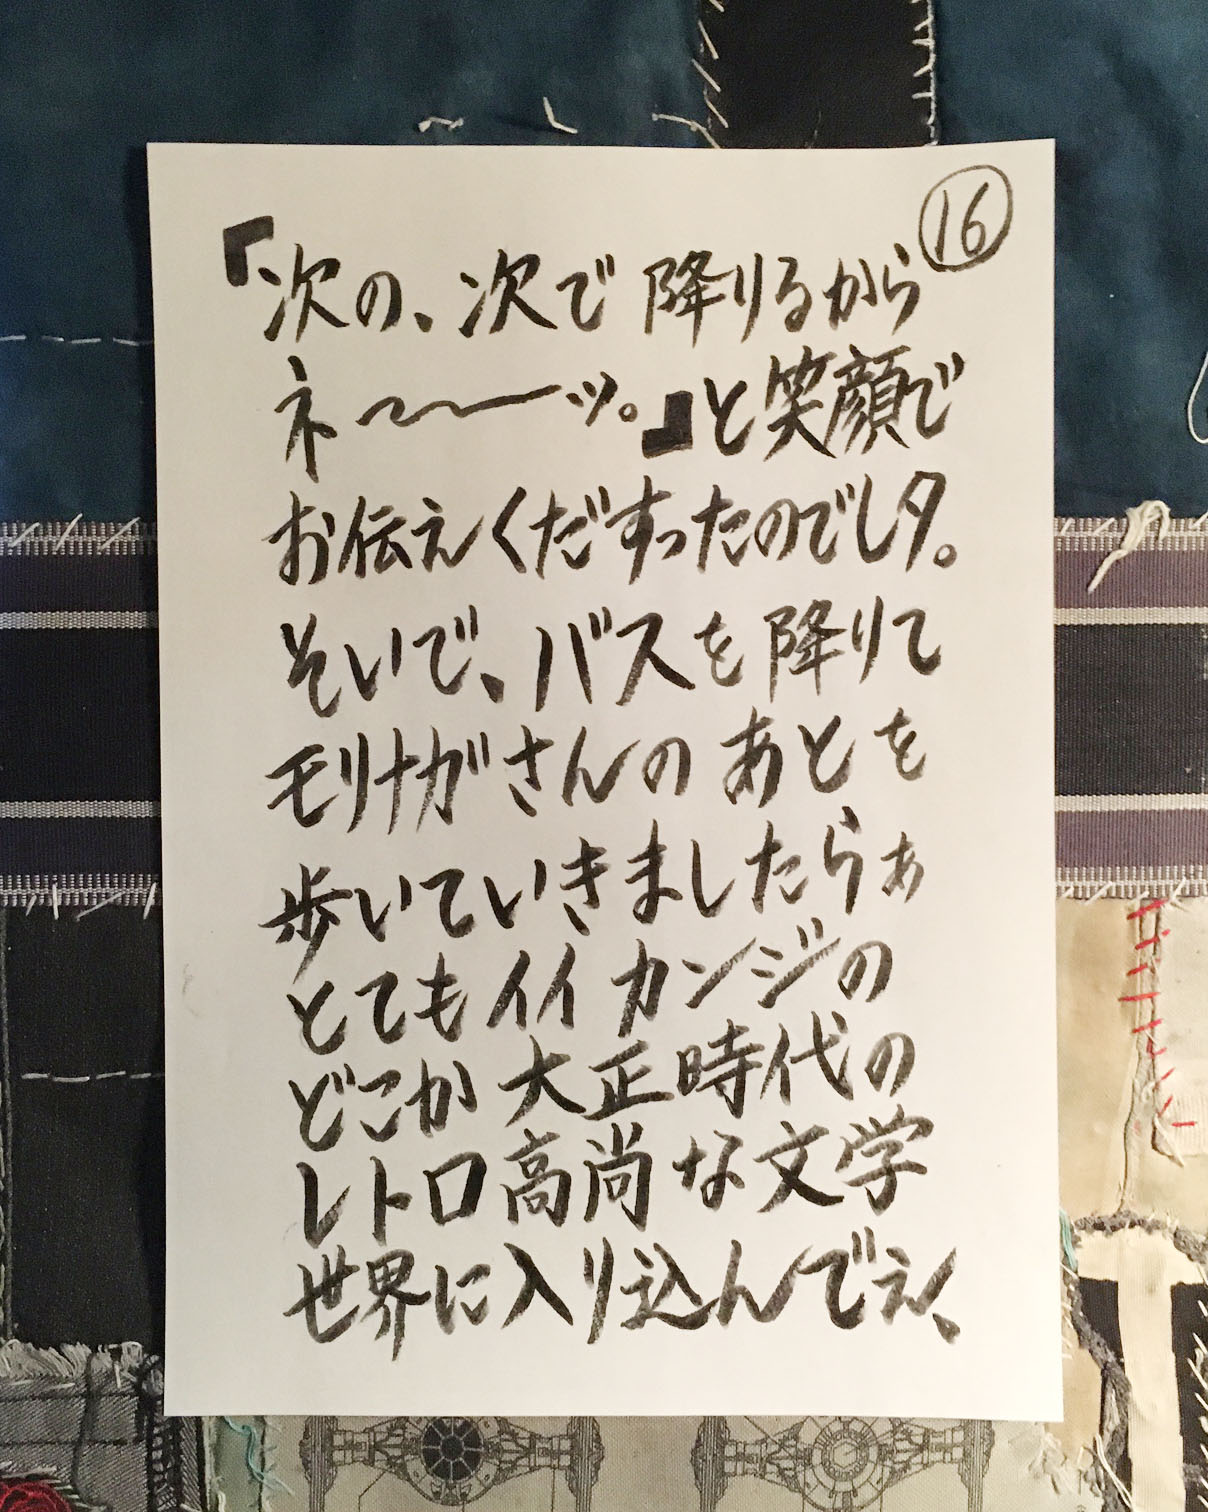 ⑯
『次の、次で降りるから
ネ〜ーッ。』と笑顔で
お伝えくだすったのでしタ。
そいで、バスを降りて
モリナガさんのあとを
歩いていきましたらぁ
とてもイイカンジの
どこか大正時代の
レトロ高尚な文学
世界に入り込んでぇ、